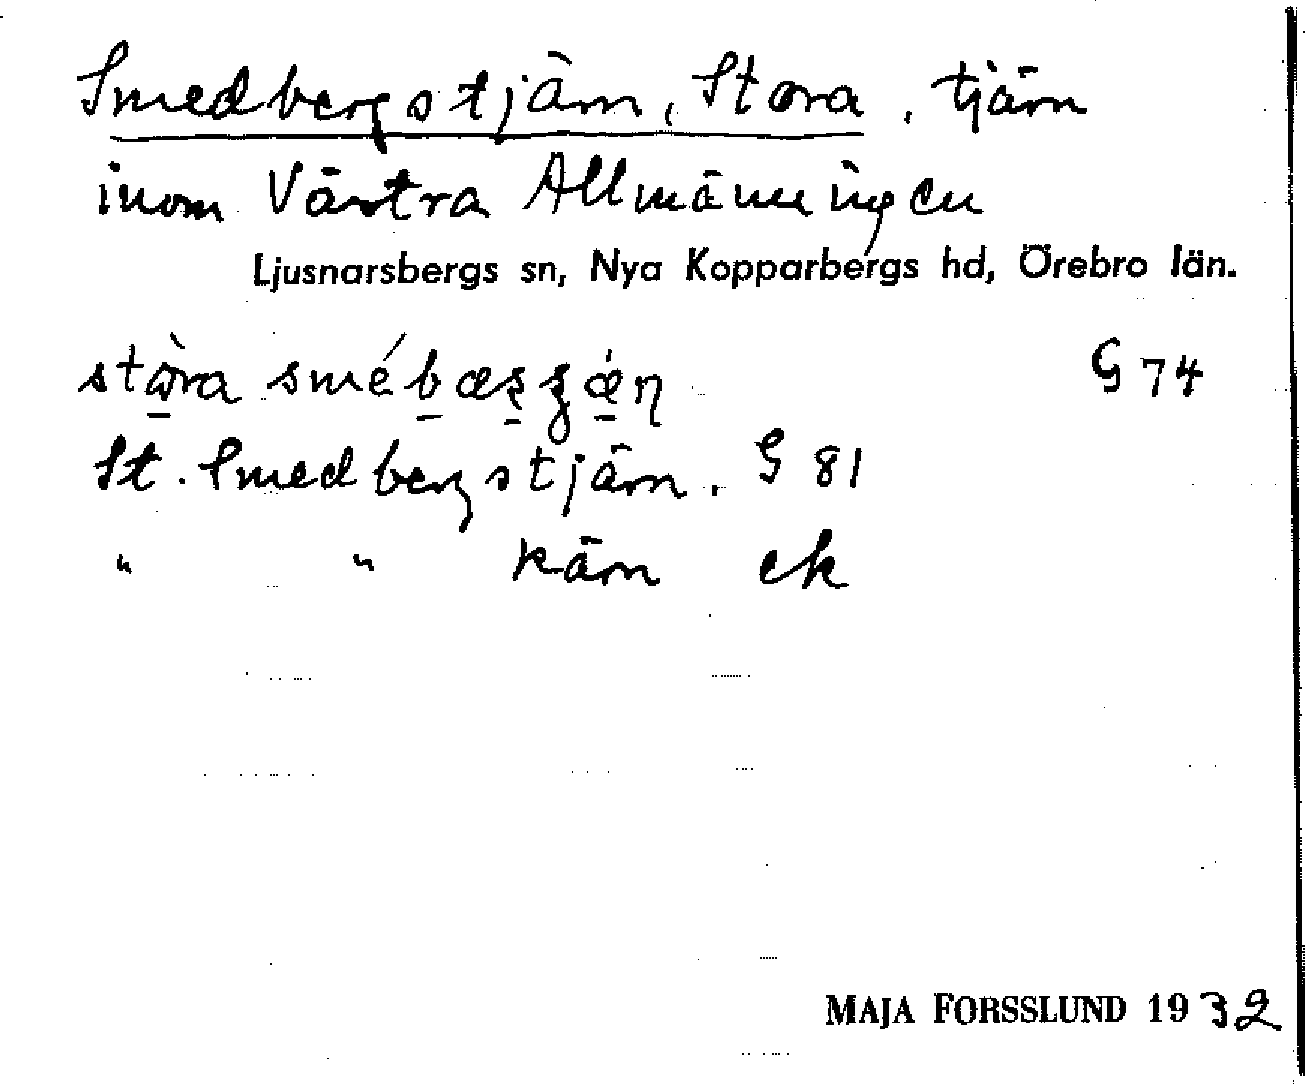 Smedbergstjärn, Stora, tjärn
inom Västra Allmänningen
Ljusnarsbergs sn, Nya Kopparbergs hd, Örebro län.
G 74
St. Smedbergstjärn. G 81
" " kärn ek
MAJA FORSSLUND 1932